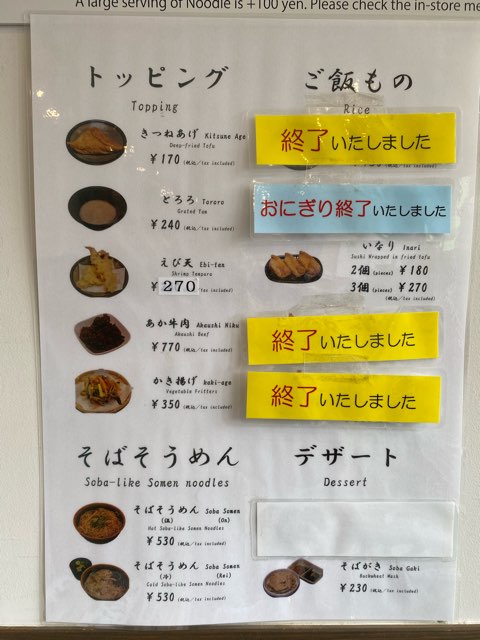 A large serving of Noodle is +100 yen. Please check the in-store me
トッピング
Topping
きつねあげ Kitsune Age
Deep-fried Tofu
￥170 (税込/tax included)
とろろ Tororo
Grated Yam
￥240 (税込/tax included)
えび天 Ebi-ten
Shrimp Tempura
￥270 (税込/tax included)
あか牛肉 Akaushi Niku
Akaushi Beef
￥770 (税込/tax included)
かき揚げ kaki-age
Vegetable Fritters
￥350 (税込/tax included)
ご飯もの
Rice
終了いたしました
おにぎり終了いたしました
いなり Inari
Sushi Wrapped in fried tofu
2個 (pieces) ￥180
3個 (pieces) ￥270
(税込/tax included)
終了いたしました
終了いたしました
そばそうめん
Soba-like Somen noodles
そばそうめん Soba Somen
(温) (On)
Hot Soba-like Somen Noodles
￥530 (税込/tax included)
そばそうめん Soba Somen
(冷) (Rei)
Cold Soba-like Somen Noodles
￥530 (税込/tax included)
デザート
Dessert
そばがき Soba Gaki
Buckwheat Mash
￥230 (税込/tax included)